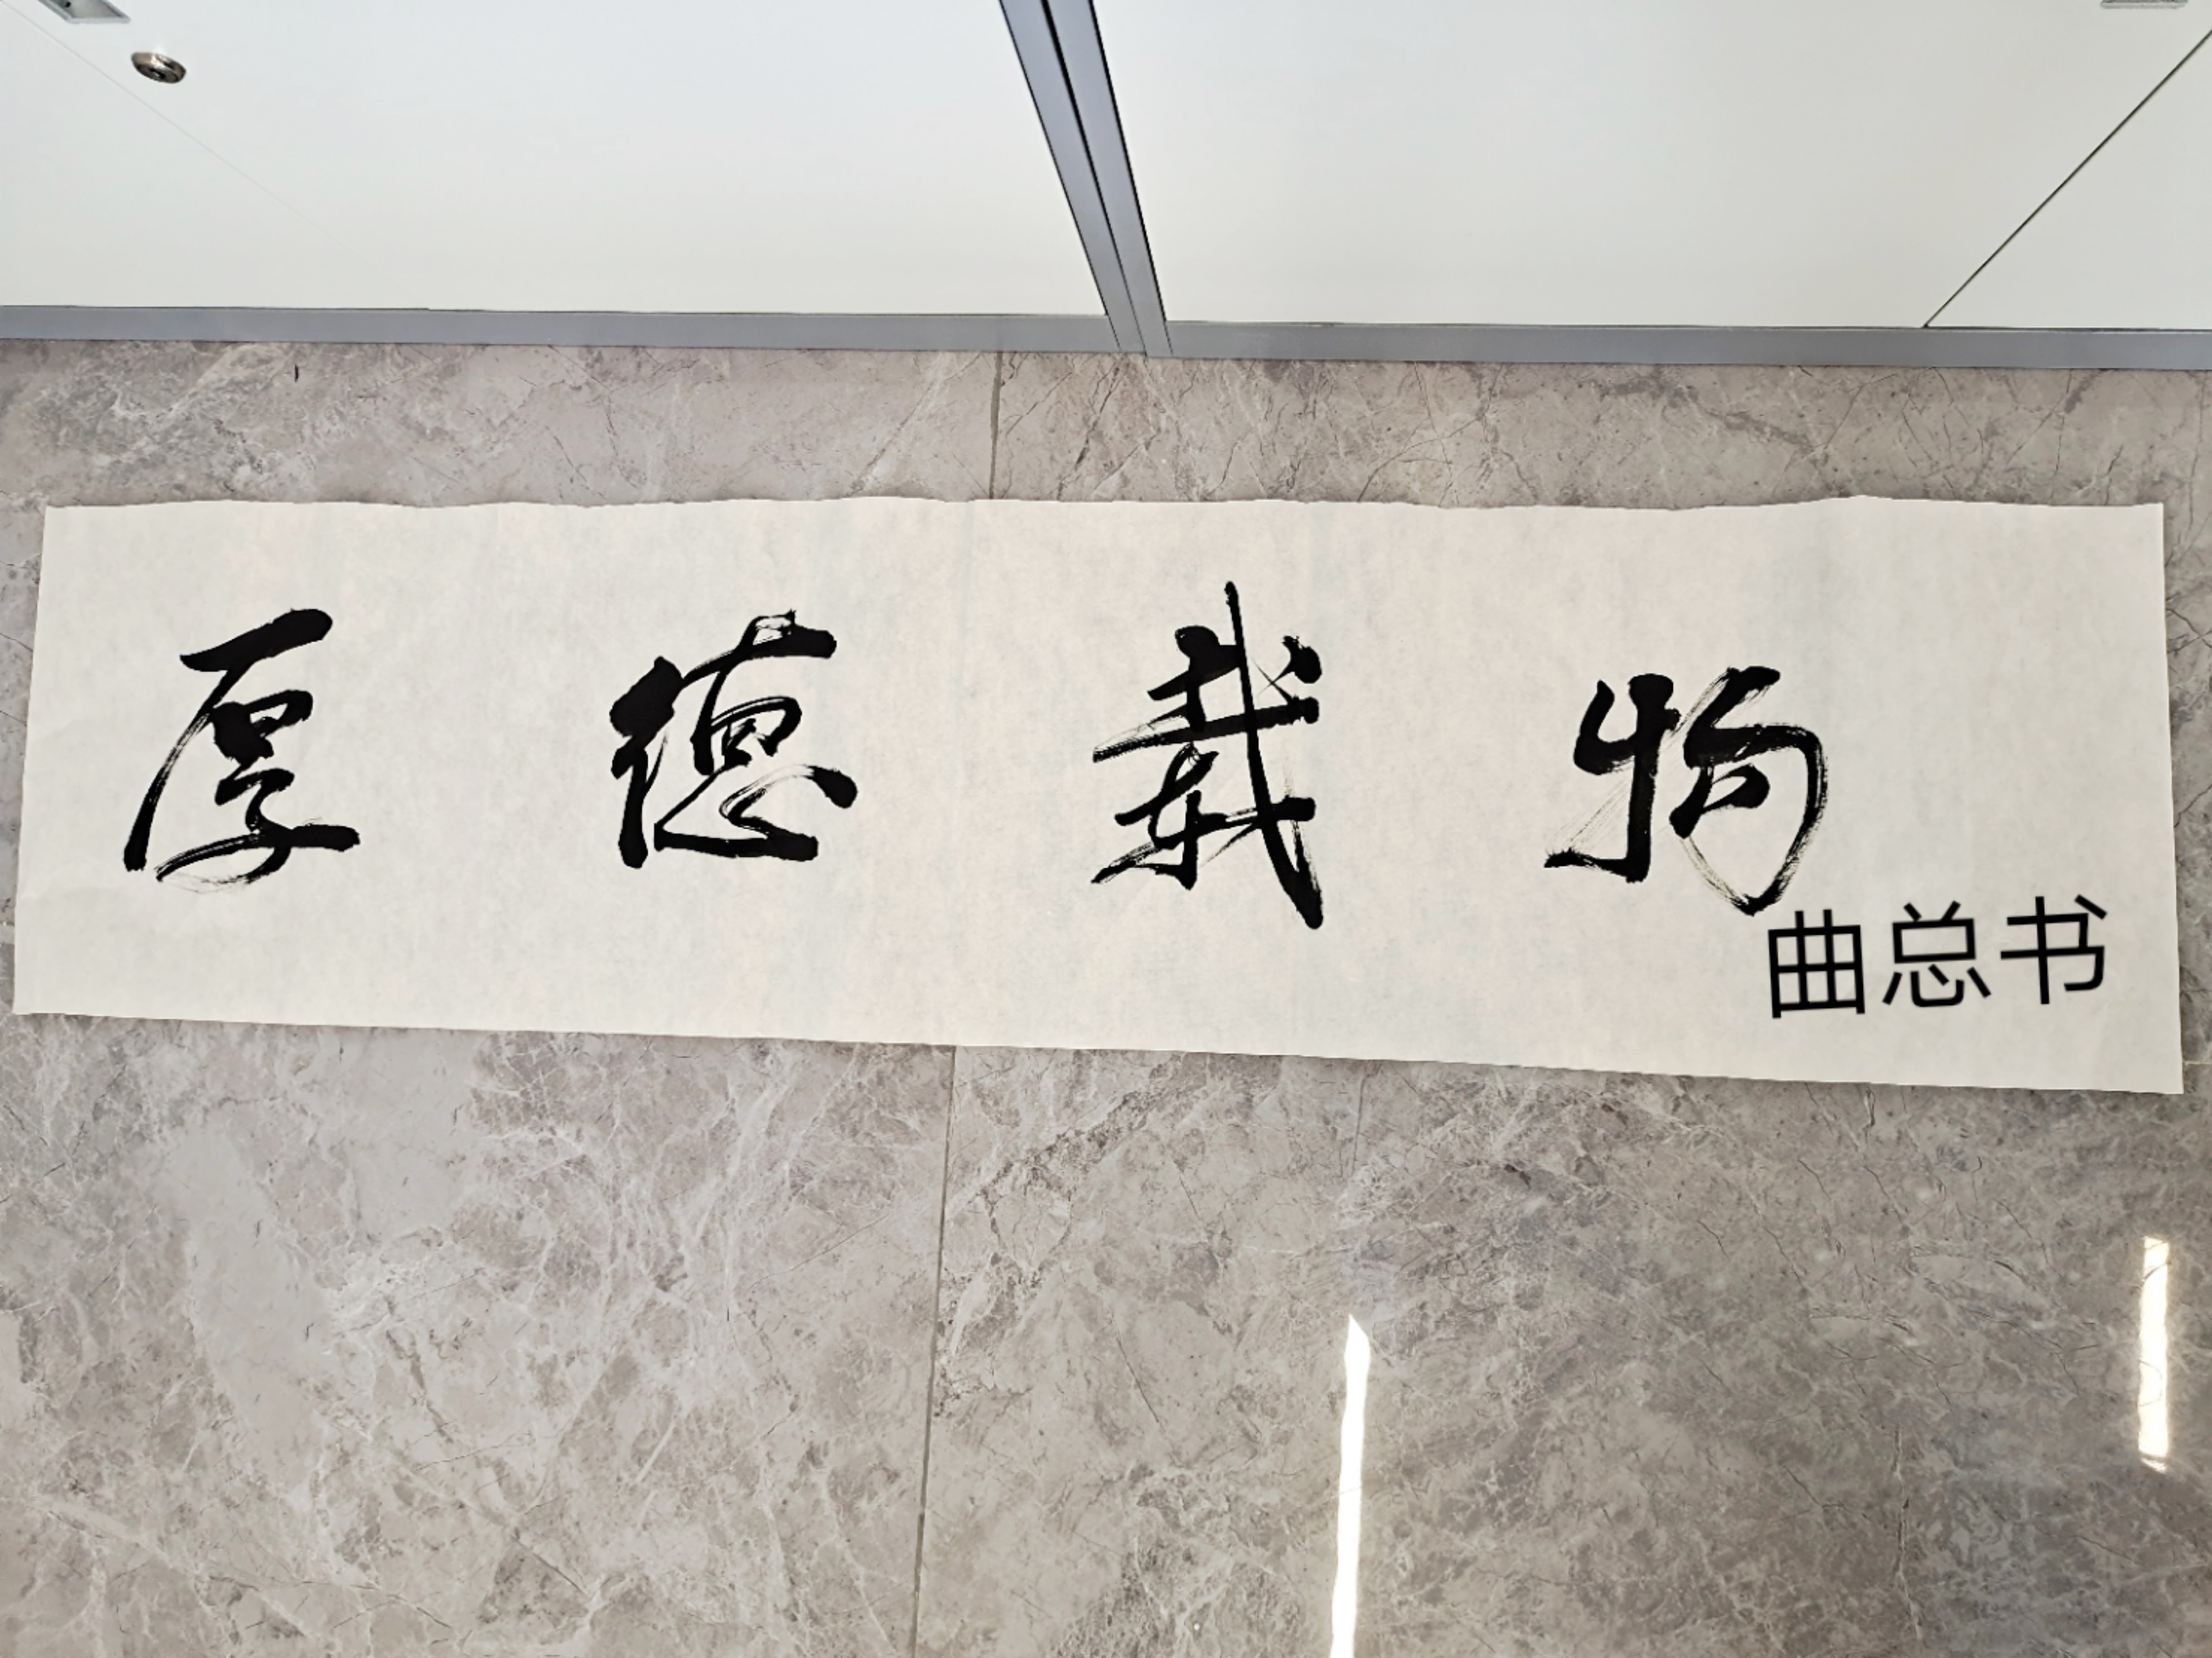 厚德载物
曲总书